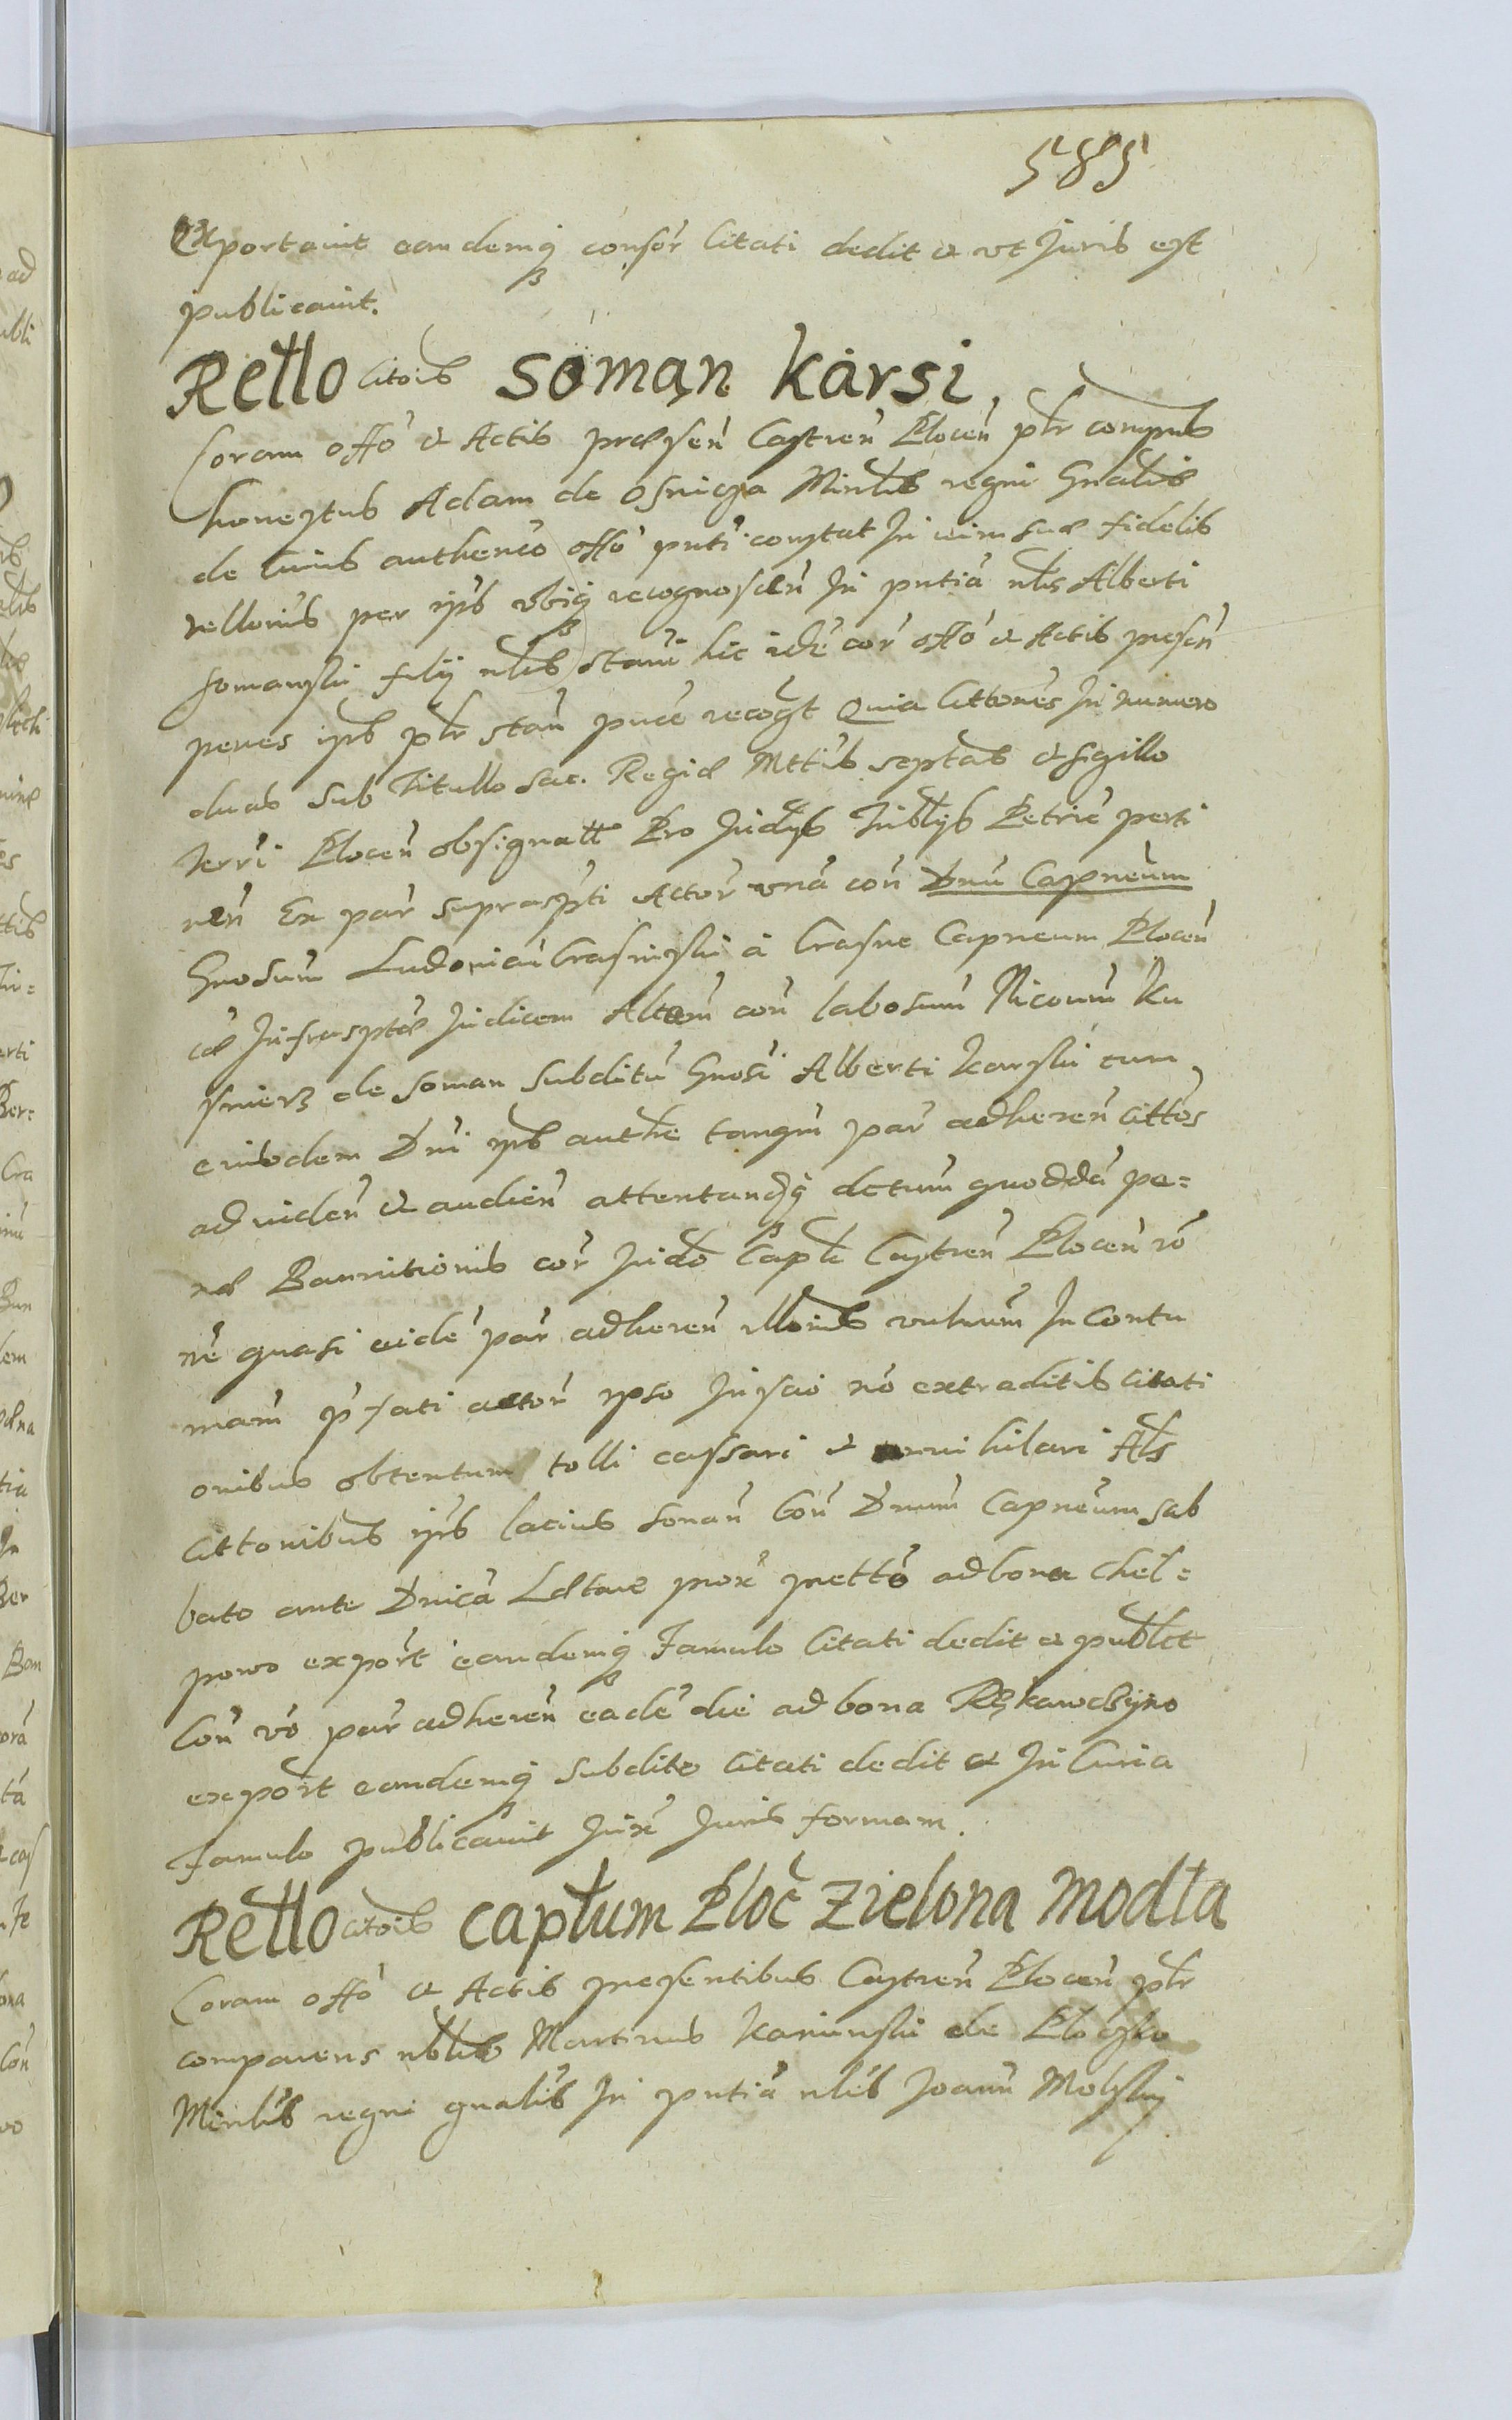 585
Exportauit eandemq consor Citati dedit & vt Juris est
publicauit.
Retlo Citois Soman Karsi
Coram offo & Actis præsen Castren Plocen plr compns
honestus Adam de Osnicza Minlis regni Gnalis
de cuius authenco offo pnti constat In vim suæ fidelis
rellonis per ips vbiq recognoscen In pntia nlis Alberti
Somansky filij nlis Stani hic idē cor offo & Actis presen
penes ips plr stan puce recogt Quia Cittones In numero
duas sub Titullo Sac. Regiæ Mttis scptas & sigillo
terri Plocen obsignatt Pro Judys Triblijs Petric perti
nen Ex par suprascpti Actor vna con Dnu Capneum
Gnosum Ludouicu Crasinsky a Crasne Capneum Plocen
cæ Infrascptæ Judicem Altam con labosum Nicoum Ku
snierz de Soman subditu Gnosi Alberti Karsky cum
eiusdem Dni ips authe tanqm par adheren Cittos
ad viden & audien attentandq dctum quodda pæ=
næ Bannitionis cor Judo Capli Castren Plocen ro
ne quasi eide par adheren illonis vulnum In contu
mam p fati actor ipso Inscio no extraditis citati
onibus obtentum tolli cassari & annihilari Als
Cittonibus ips latius sonan Con Dnum Capneum sab
bato ante Dnica Lætare prox prætto ad bona Chel=
powo export eandemq Famulo Citati dedit & publct
Con vo par adheren eade die ad bona Rzkawczyno
export eandemq subdito Citati dedit & In Curia
Famulo publicauit Jux Juris formam.
Retlo citois captum Ploc Zielona Modła
Coram offo & Actis presentibus Castren Plocen plr
comparens nblis Martinus Kaniewsky de Ploczko
Minlis regni gnalis In pntia nlis Joann Molsky